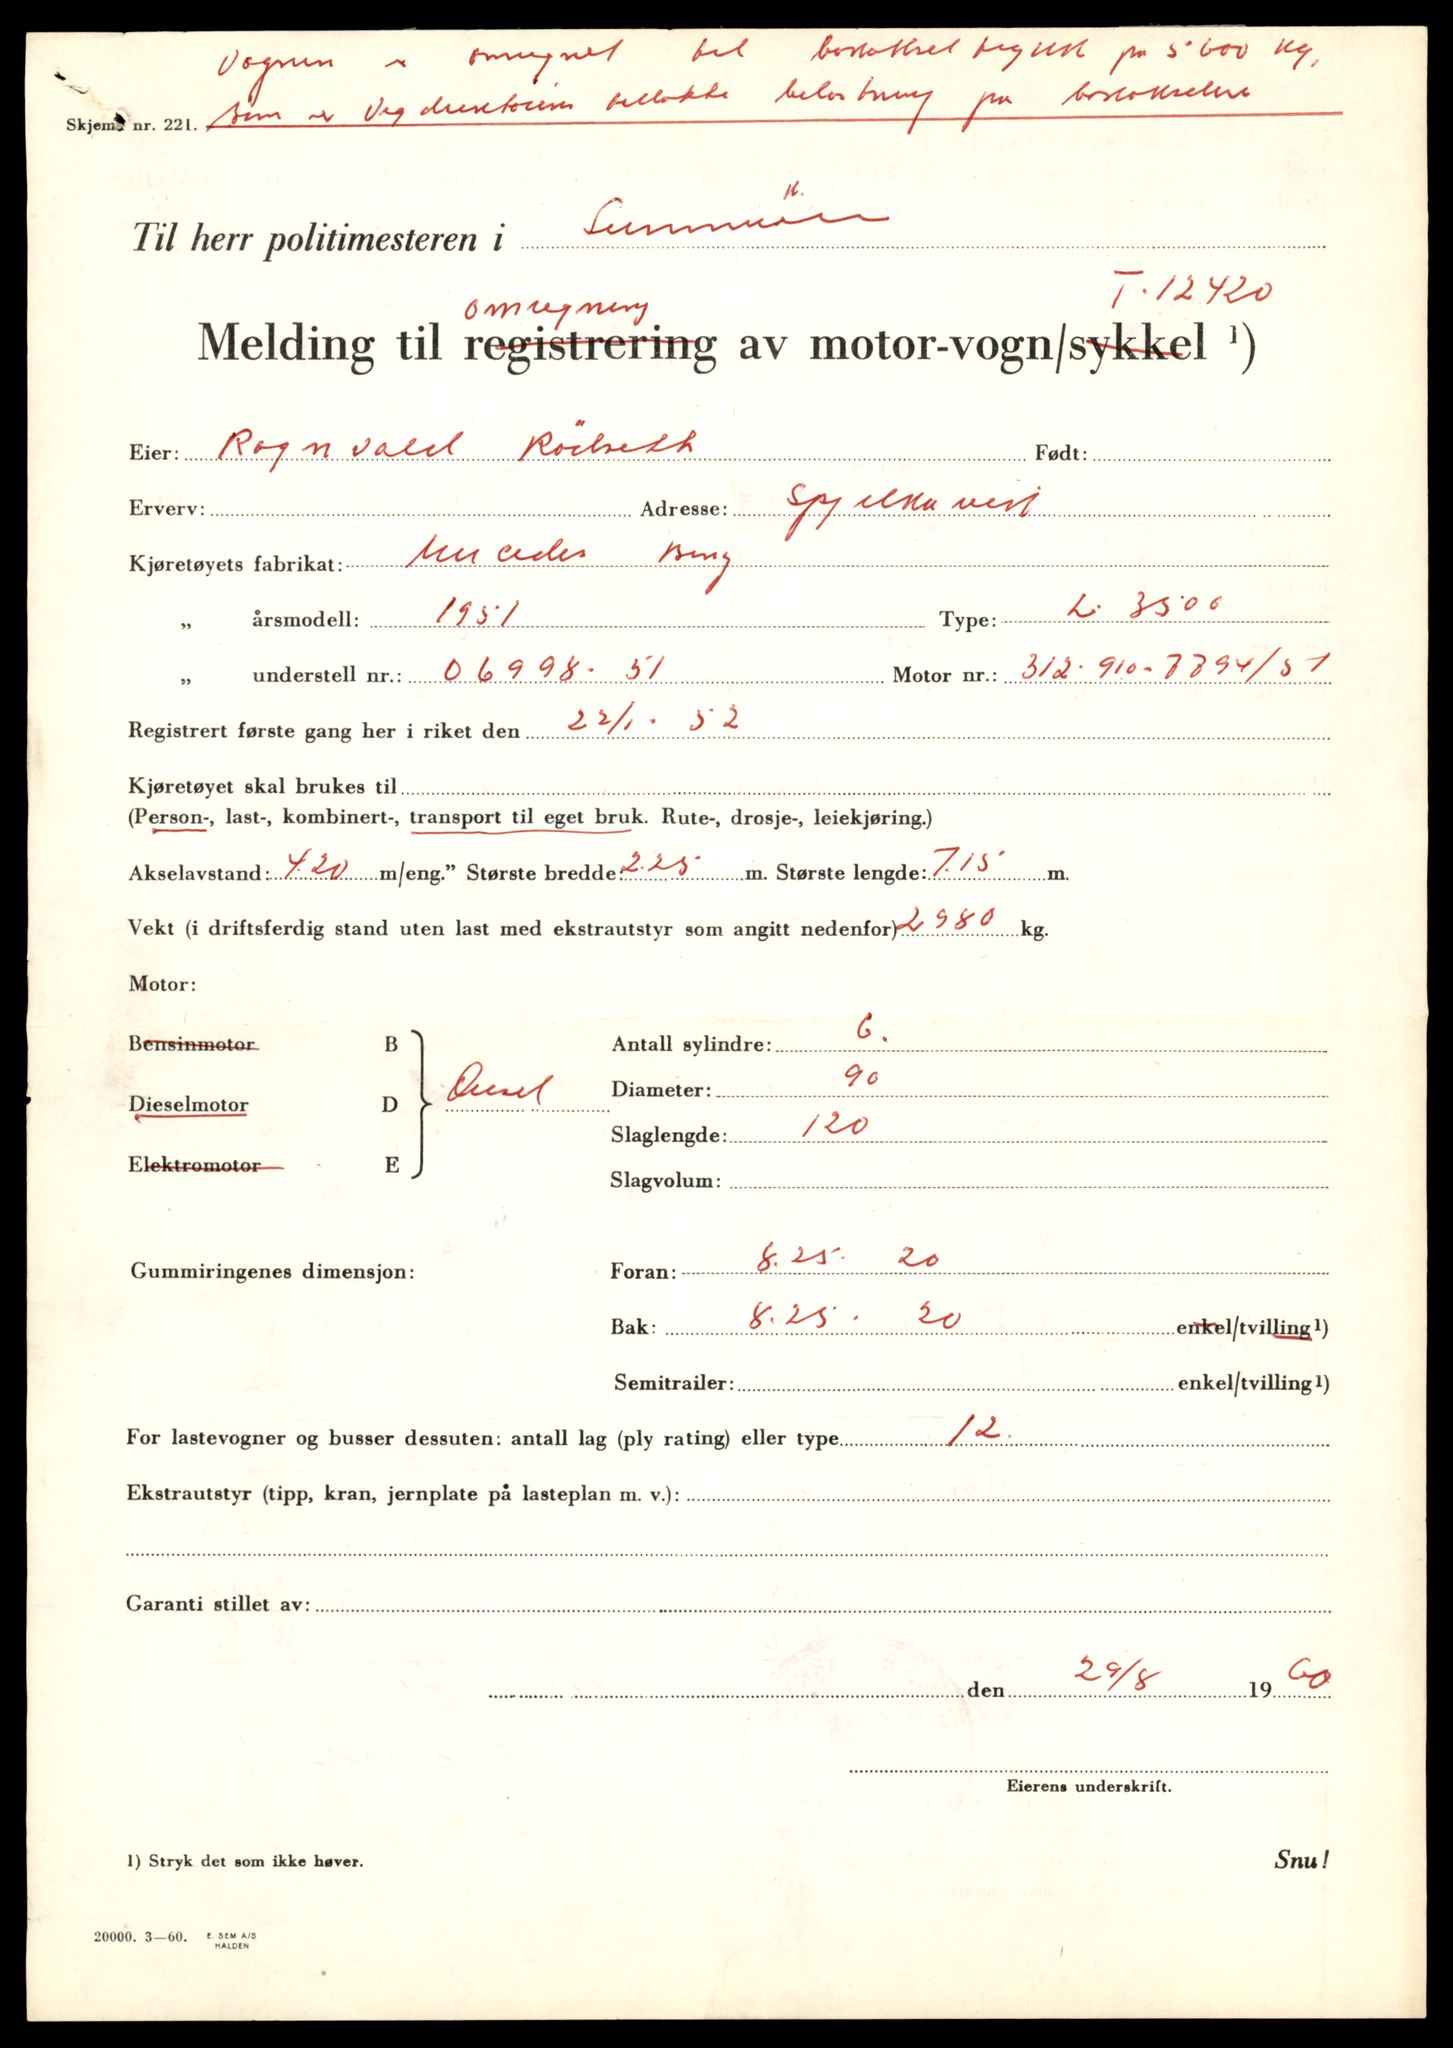 Vognen er omregnet til bakakseltrykk på 5600 kg,
som er Vegdirektørens tillatte belastning på bakakselen
Skjema nr. 221.
Til herr politimesteren i Sunnmöre
T-12420
omregning
Melding til registrering av motor-vogn/sykkel ¹)
Eier: Rognvald Rödseth Født:
Erverv: Adresse: Spjelkavik
Kjøretøyets fabrikat: Mercedes Benz
„ årsmodell: 1951 Type: L. 3500
„ understell nr.: 06998. 51 Motor nr.: 312-910-
Registrert første gang her i riket den 22/1. 52
Kjøretøyet skal brukes til
(Person-, last-, kombinert-, transport til eget bruk. Rute-, drosje-, leiekjøring.)
Akselavstand: 4.20 m/eng.” Største bredde: 2.25 m. Største lengde: 7.15 m.
Vekt (i driftsferdig stand uten last med ekstrautstyr som angitt nedenfor) 2980 kg.
Motor:
Bensinmotor B
Dieselmotor D
Elektromotor E
Diesel
Antall sylindre: 6.
Diameter: 90
Slaglengde: 120
Slagvolum:
Gummiringenes dimensjon: Foran: 8.25. 20
Bak: 8.25. 20 enkel/tvilling¹)
Semitrailer: enkel/tvilling¹)
For lastevogner og busser dessuten: antall lag (ply rating) eller type 12.
Ekstrautstyr (tipp, kran, jernplate på lasteplan m. v.):
Garanti stillet av:
den 29/8 19 60
Eierens underskrift.
1) Stryk det som ikke høver. Snu!
20000. 3—60. E. SEM A/S
HALDEN